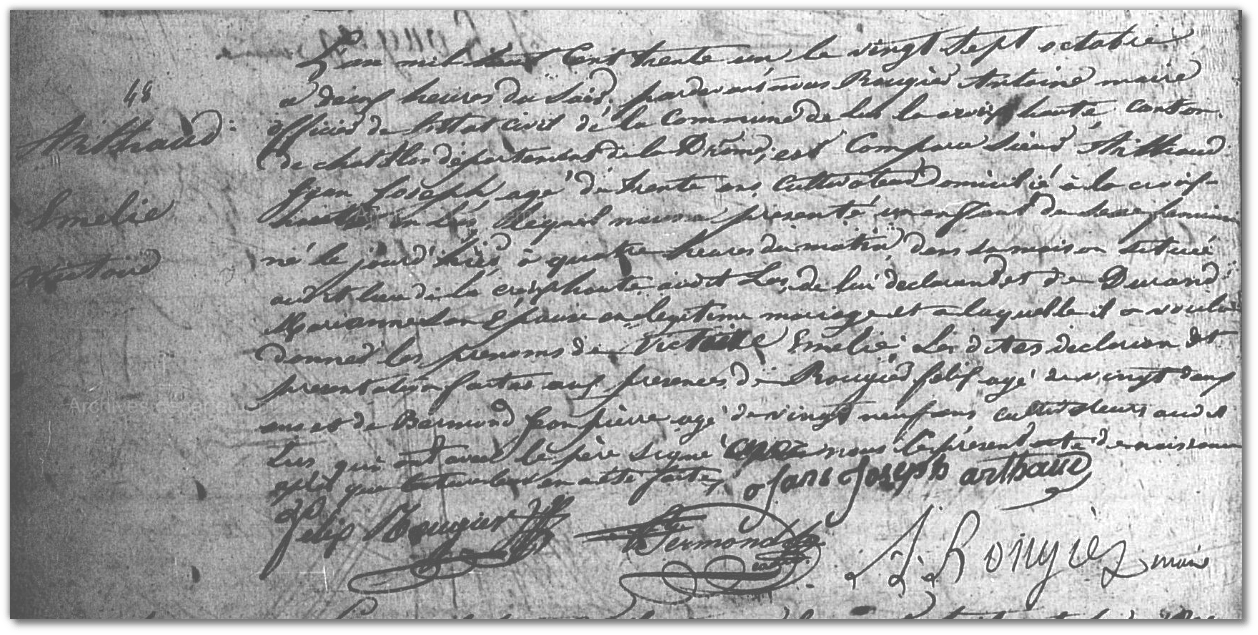 48
Arthaud
Emelie
Victoire
L'an mil huit Cent trente un le vingt sept octobre
a deux heures du Soir, pardevant nous Rougier Antoine maire
officier de l'état civil de la Commune de Lus la croix haute, canton
de chatillon département de la Drôme, est Comparu Sieur Arthaud
Jean Joseph agé de trente ans Cultivateur domicilié à la croix-
haute, à Lus, lequel nous a présenté un enfant du sexe feminin
né le jour d'hier, à quatre heures du matin, dans sa maison située
audit lieu de la croix haute audit Lus, de lui déclarant et de Durand
Marianne son Epouse en légitime mariage et a laquelle il a voulu
donner les prenoms de Victoire Emelie. Les dites declaration et
presentation faites aux presences de Rougier felix agé de vingt deux
ans et de Bermond Jean pierre agé de vingt neuf ans cultivateurs audit
Lus, qui ont avec le père Signé après nous le présent acte de naissance
après que lecture leur en a été faite,
Jean Joseph arthaud
felix Rougier
Bermond
A. Rougier maire
Archives